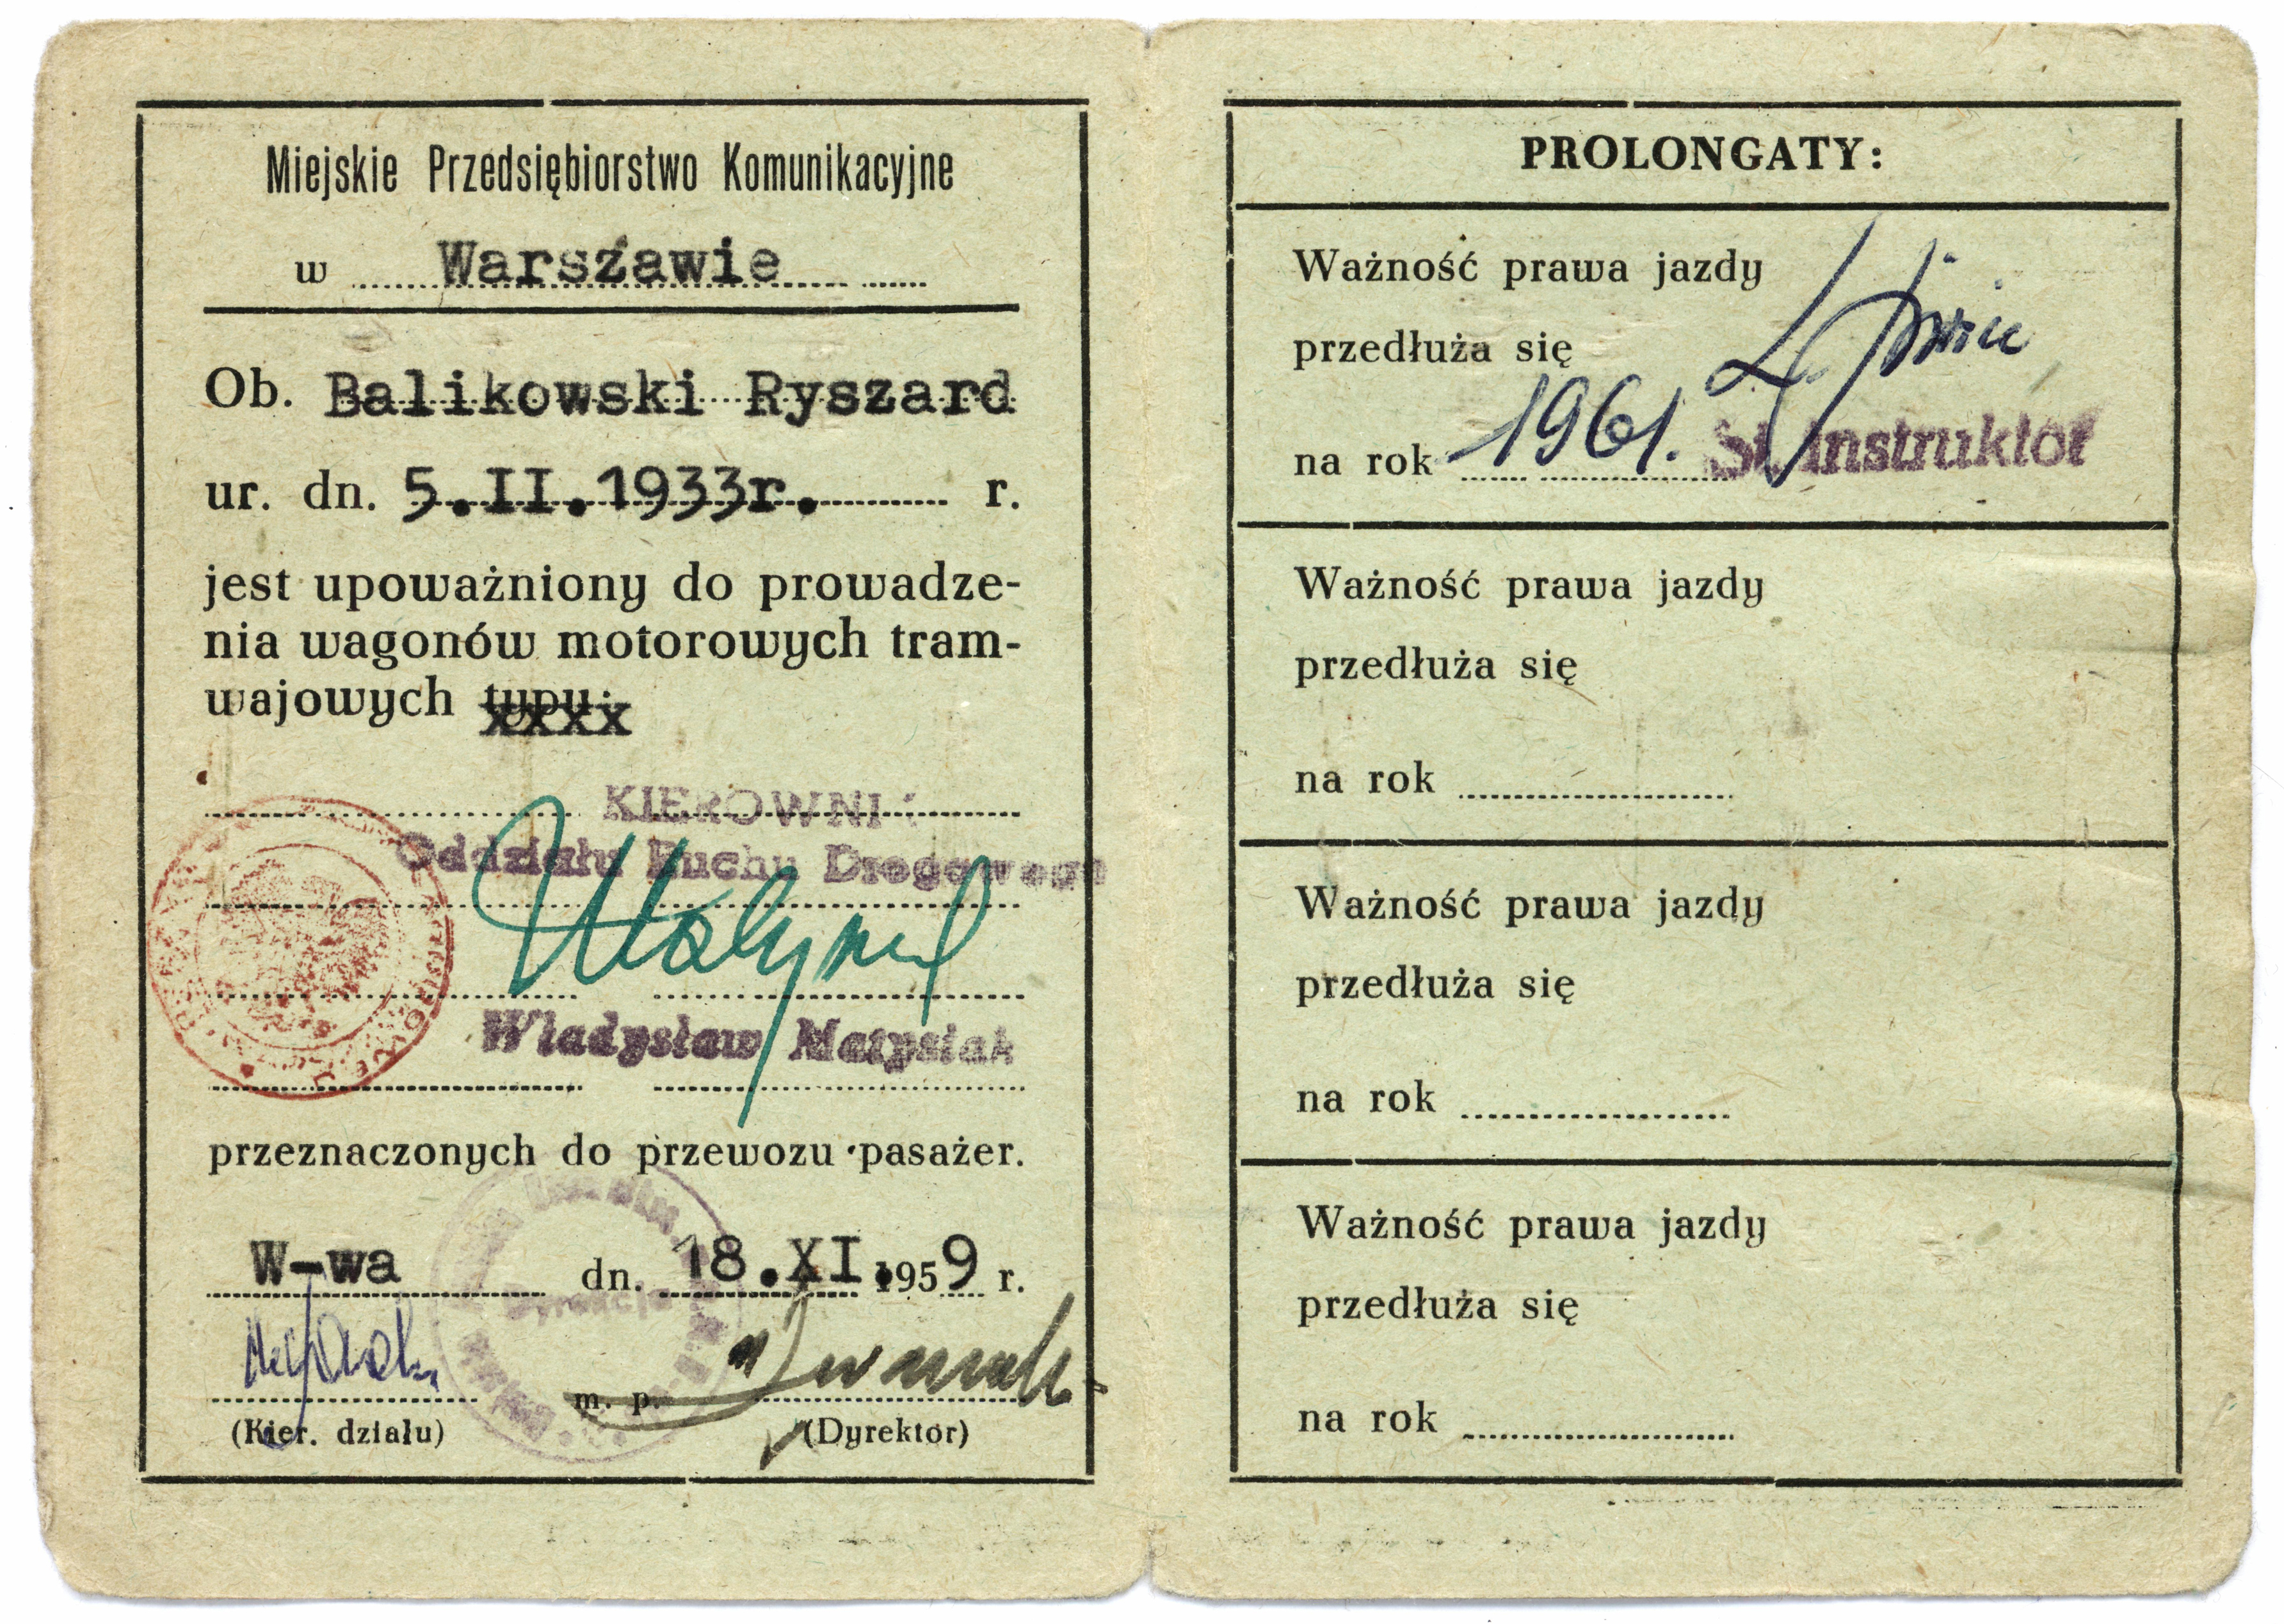 Miejskie Przedsiębiorstwo Komunikacyjne
w Warszawie
Ob. Balikowski Ryszard
ur. dn. 5.II.1933r. r.
jest upoważniony do prowadze-
nia wagonów motorowych tram-
wajowych typu:
xxxx
KIEROWNI
Oddziału Ruchu Drogowego
Władysław Matysiak
przeznaczonych do przewozu pasażer.
W-wa dn. 18.XI.1959 r.
m. p.
(Kier. działu) (Dyrektor)
PROLONGATY:
Ważność prawa jazdy
przedłuża się
na rok 1961. St. instruktor
Ważność prawa jazdy
przedłuża się
na rok
Ważność prawa jazdy
przedłuża się
na rok
Ważność prawa jazdy
przedłuża się
na rok